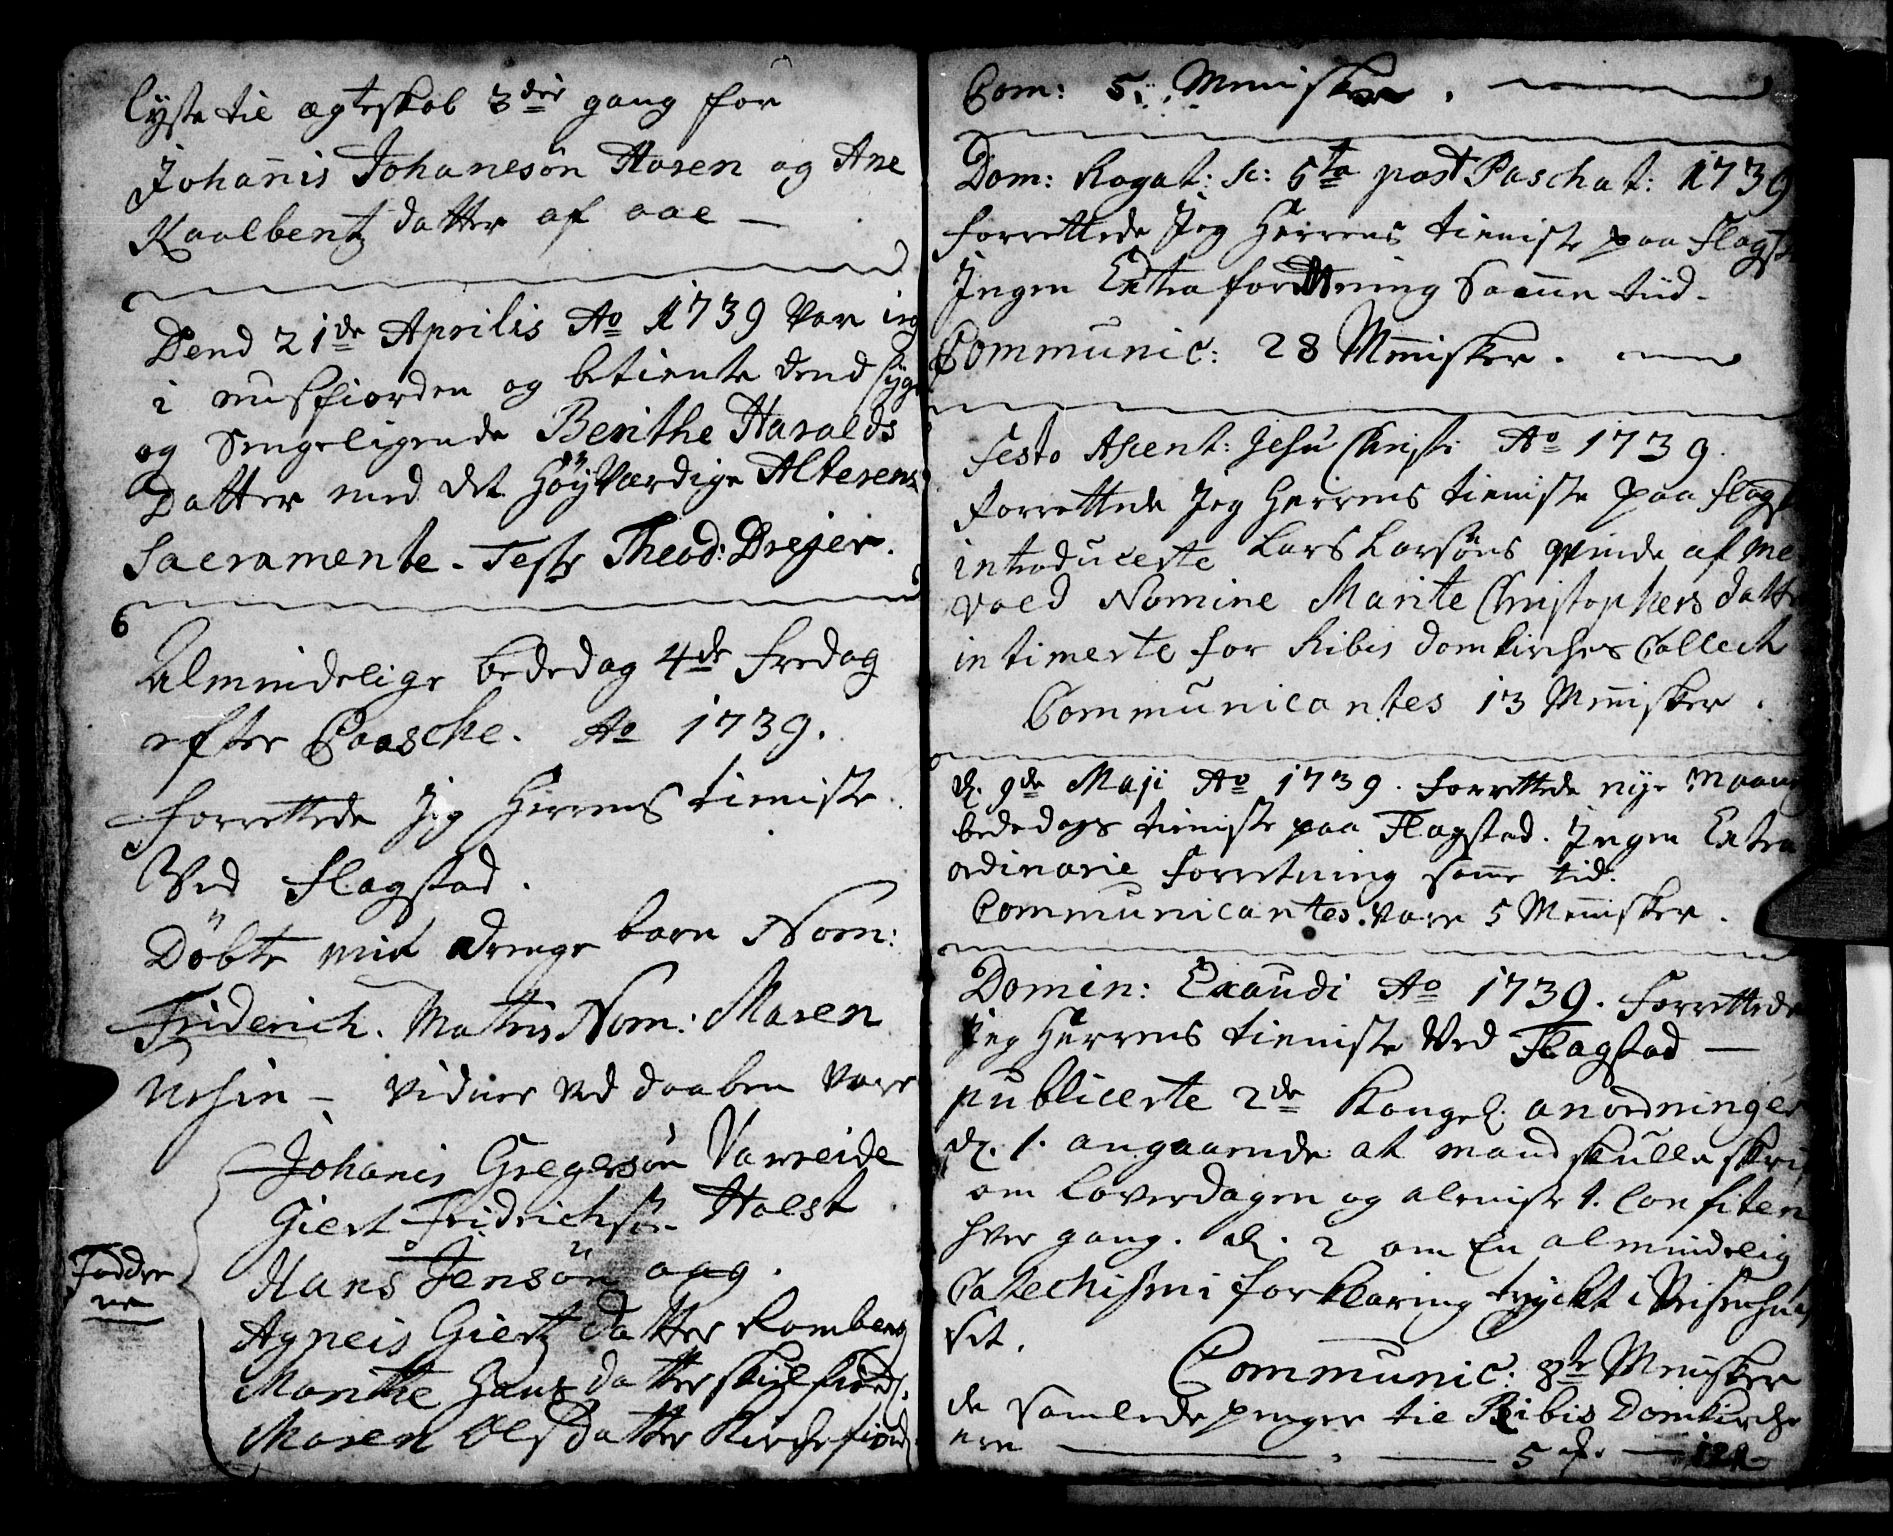 lyste til ægteskab 3die gang for
Johannis Johanesøn Hasen og Ane
Kaalbentz datter af aae —
Dend 21de Aprilis Ao 1739 Var ieg
i nusfiorden og betiente dend syge
og Sengeligende Berithe Haralds
Datter med det Høyværdige Alterens
Sacramente. Teste Theod: Drejer.
6
Almindelige bededag 4de Fredag
efter Paasche. Ao 1739.
Forrettede Jeg Herrens tieniste
Ved Flagstad.
Døbte mit drenge barn Nom:
Friderich. Matris Nom: Maren
— Vidner ved daaben vare
Johanis Gregersøn Varreide
Giert Fridrichsøn Holst
Hans Jensøn aag.
Agneis Giertz datter Romberg
Marithe Hans datter Skielfiord.
Maren Olss datter Kirchefiord
Fadder
ne
Com: 5. Mennisker.
Dom: Rogat: sc: 5ta post Paschat: 1739
forrettede Jeg Herrens tieniste paa Flagst
Ingen Extra forretning Samme tiid.
Communic: 28 Mennisker.
Festo Ascent: Jesu Christi Ao 1739.
Forrettede Jeg Herrens tieniste paa Flagst
introducerte Lars Larsøns qvinde af Me
vaed Nomine Marite Christophers datter
intimerte for Ribis domkirches Collect
Communicantes 13 Mennisker.
d. 9de Maji Ao 1739. Forrettede nye Maane
bededags tieniste paa Flagstad. Ingen Extra
ordinarie Forretning samme tid.
Communicantes vare 5 Mennisker.
Domin: Exaudi Ao 1739. Forrettede
Jeg Herrens tieniste Ved Flagstad —
publicerte 2de Kongel. anordninger
d. 1. angaaende at mand skulle skrif
om Løverdagen og aleniste 1. Confiten
hver gang. d. 2 om En almindelig
Catechismi forklaring tryckt i Veisenhu
set.
Communic: 8te Mennisker
de samlede penger til Ribis Domkirche
ere — 5 — 12